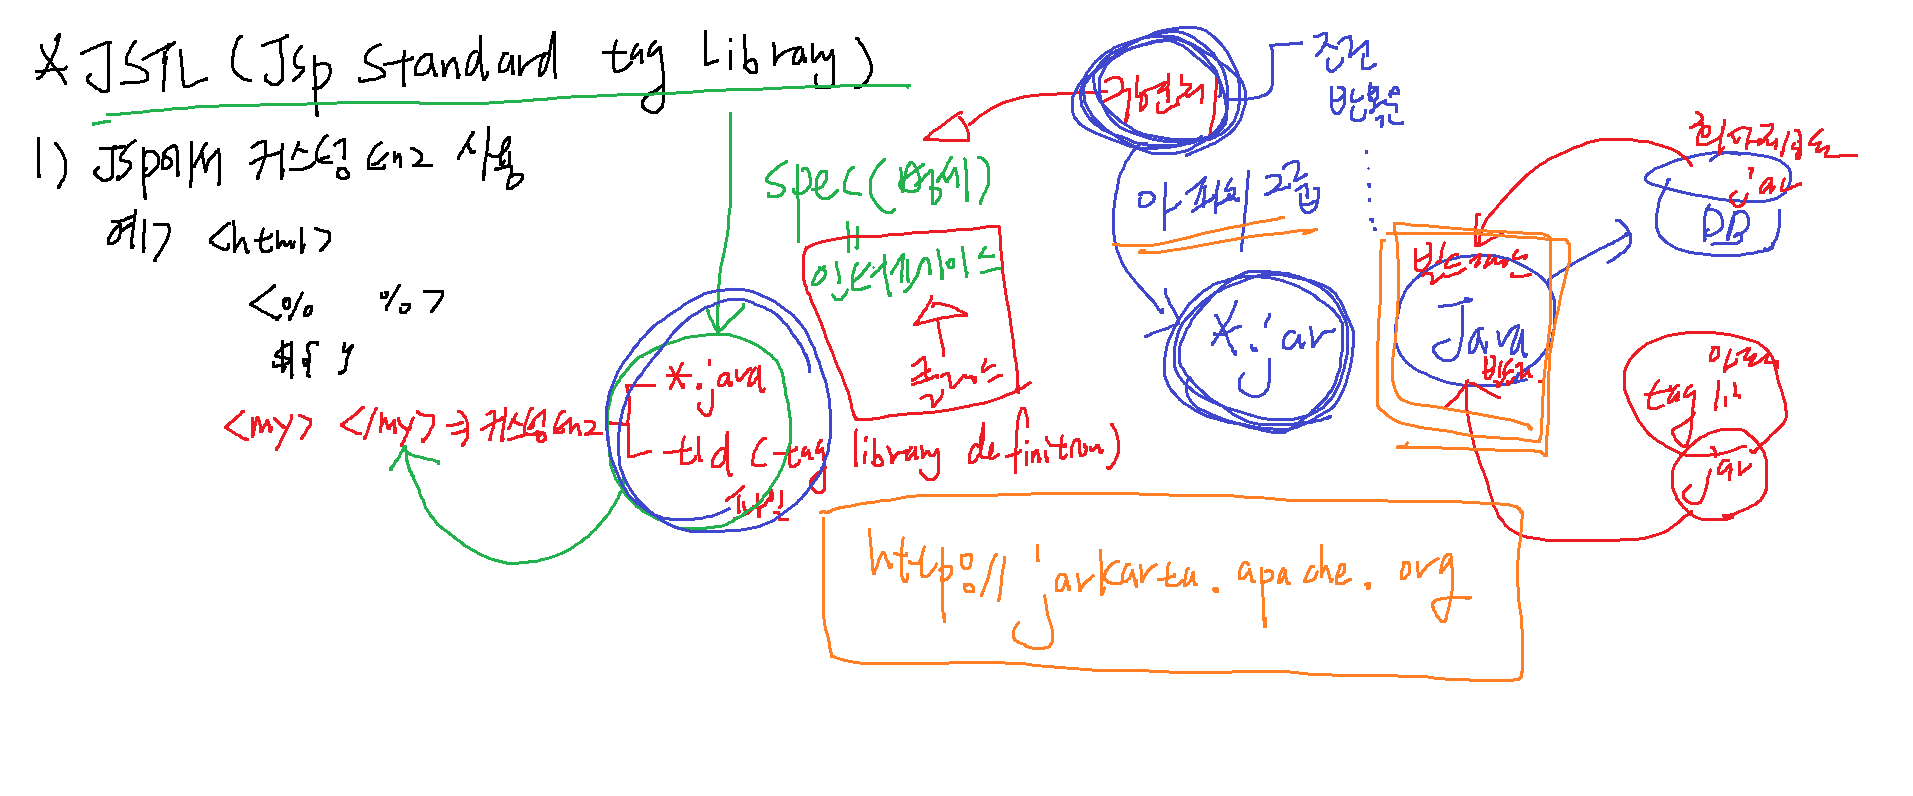 * JSTL (Jsp standard tag library)
1) JSP에서 커스텀 태그 사용
예) <html>
<% %>
${ }
<my> </my> => 커스텀 태그
*.java
tld (tag library definition)
파일
spec(명세)
=
인터페이스
클래스
구현된
조건
반복문
아파치 그룹
*.jar
회사제공
.jar
DB
Java
tag lib
jar
http://jarkarta.apache.org